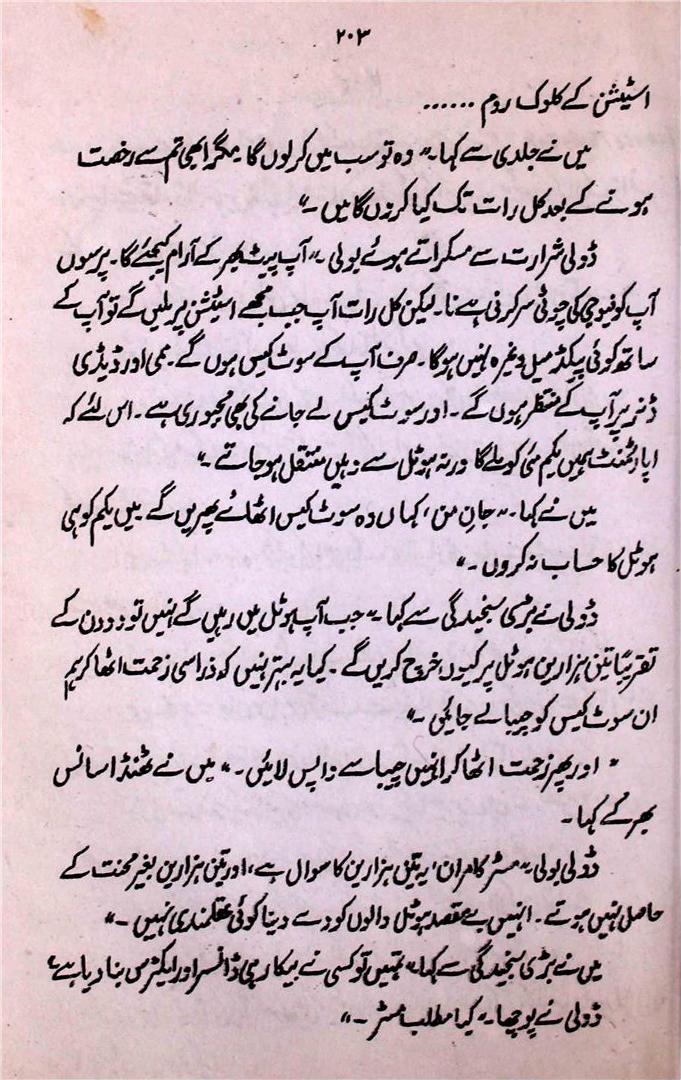 ۲۰۳
اسٹیشن کے کلوک روم ......
میں نے جلدی سے کہا۔ "وہ تو سب میں کر لوں گا۔ مگر ابھی تم سے رخصت
ہونے کے بعد کل رات تک کیا کروں گا میں ۔"
ڈولی شرارت سے مسکراتے ہوئے بولی۔ "آپ پیٹ بھر کے آرام کیجئے گا۔ پرسوں
آپ کو فیوجی کی چوٹی سر کرنی ہے نا۔ لیکن کل رات آپ جب مجھے اسٹیشن پر ملیں گے تو آپ کے
ساتھ کوئی پیکڈ میل وغیرہ نہیں ہوگا۔ صرف آپ کے سوٹ کیس ہوں گے۔ ممی اور ڈیڈی
ڈنر پر آپ کے منتظر ہوں گے۔ اور سوٹ کیس لے جانے کی بھی مجبوری ہے۔ اس لئے کہ
اپارٹمنٹ ہمیں یکم مئی کو ملے گا ورنہ ہوٹل سے وہیں منتقل ہو جاتے ۔"
میں نے کہا۔ "جانِ من، کہاں وہ سوٹ کیس اٹھائے پھریں گے۔ میں یکم کو ہی
ہوٹل کا حساب نہ کروں ۔"
ڈولی نے بڑی سنجیدگی سے کہا "جب آپ ہوٹل میں رہیں گے نہیں تو دو دن کے
تقریباً تین ہزار ین ہوٹل پر کیوں خرچ کریں گے۔ کیا یہ بہتر نہیں کہ ذرا سی زحمت اٹھا کر ہم
ان سوٹ کیس کو چیبا لے جائیں ۔"
"اور پھر زحمت اٹھا کر انہیں چیبا سے واپس لائیں ۔" میں نے ٹھنڈا سانس
بھر کے کہا ۔
ڈولی بولی "مسٹر کامران، یہ تین ہزار ین کا سوال ہے، اور تین ہزار ین بغیر محنت کے
حاصل نہیں ہوتے۔ انہیں بے مقصد ہوٹل والوں کو دے دینا کوئی عقلمندی نہیں ۔"
میں نے بڑی سنجیدگی سے کہا "تمہیں تو کسی نے بیکار ہی ڈانسر اور ایکٹرس بنا دیا ہے"
ڈولی نے پوچھا۔ "کیا مطلب مسٹر ۔"